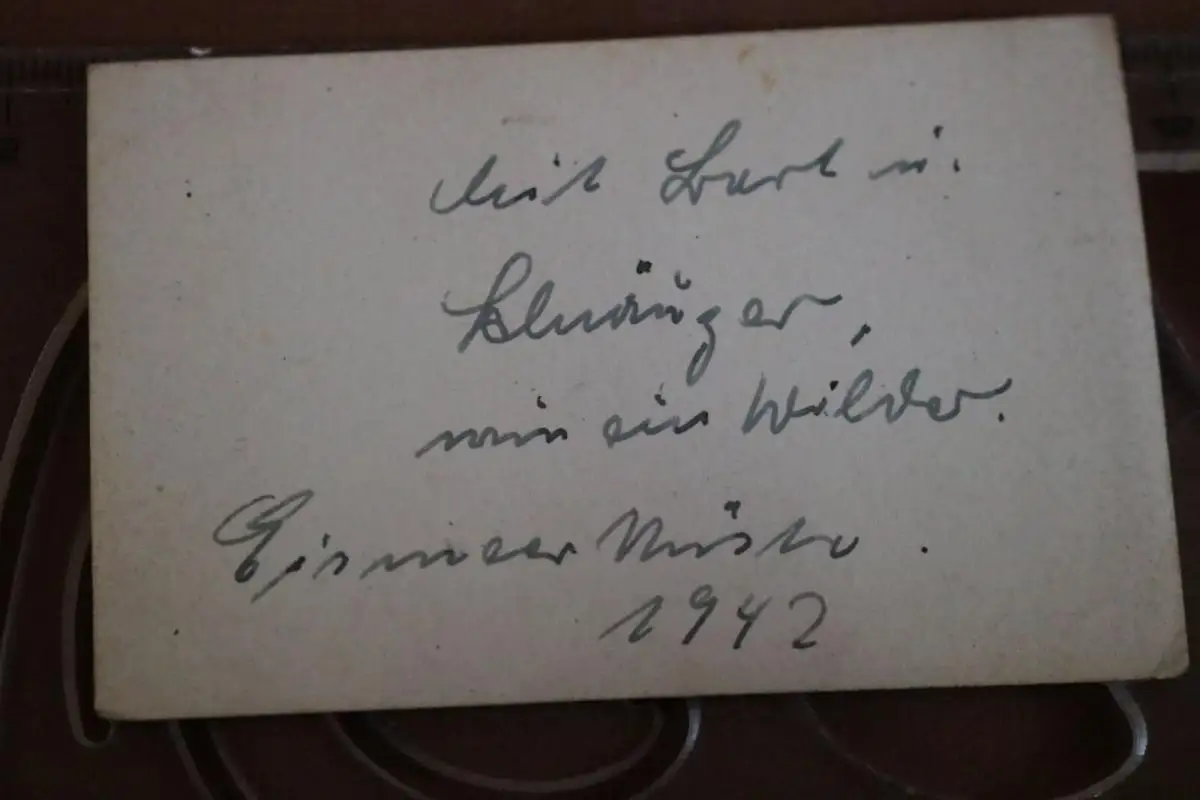 Mit Bart u.
Schnäuzer,
wie ein Wilder.
Eismeer Küste.
1942